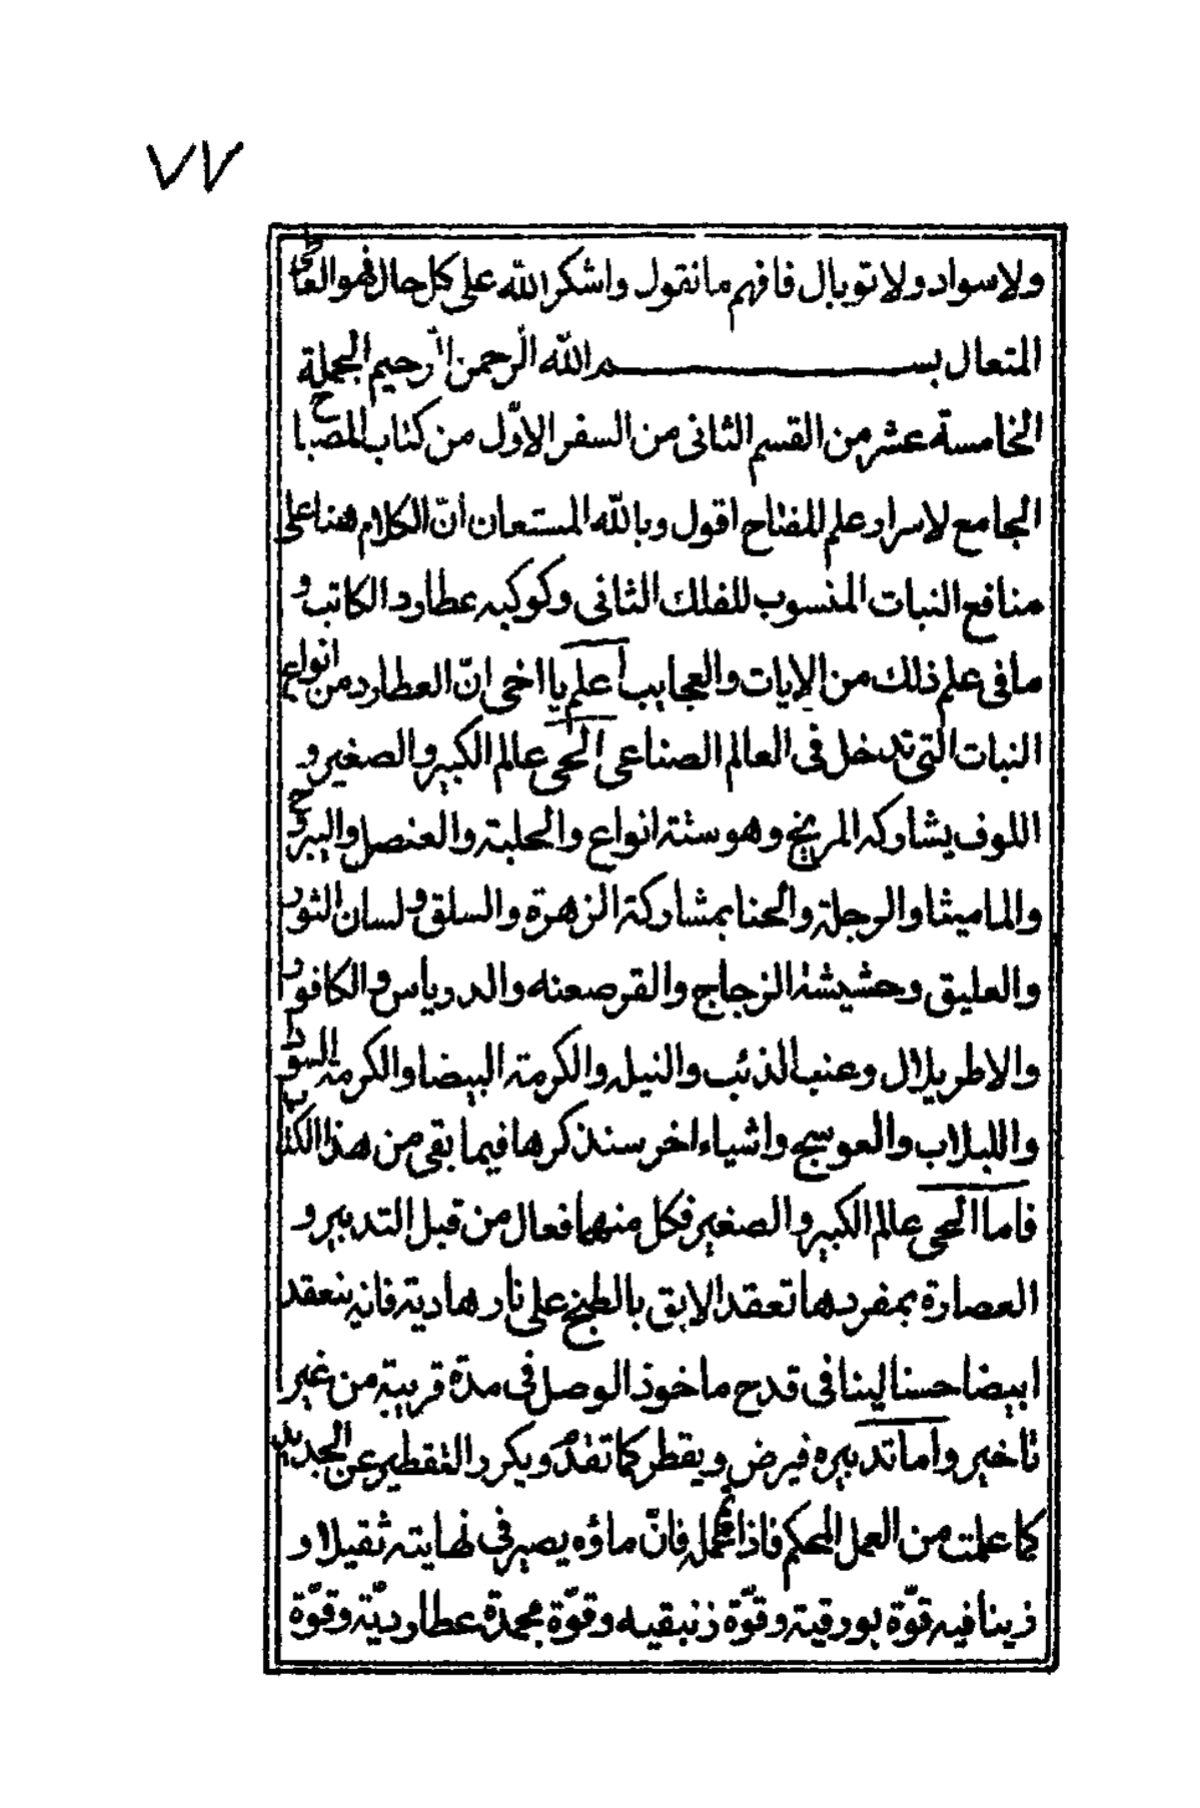 ٧٧
ولا سواد ولا توبال فافهم ما نقول واشكر الله على كل حال فهو العلى
المتعال بسم الله الرحمن الرحيم الجملة
الخامسة عشر من القسم الثانى من السفر الاوّل من كتاب المصباح
الجامع لاسرار علم المفتاح اقول وبالله المستعان انّ الكلام هنا على
منافع النبات المنسوب للفلك الثانى وكوكبه عطارد الكاتب و
ما فى علم ذلك من الايات والعجايب اعلم يا اخى انّ العطارد من انواع
النبات التى تدخل فى العالم الصناعى الحى عالم الكبير والصغير و
اللوف يشاركه المريخ وهو ستة انواع والحلبة والعنصل والبروح
والماميثا والرجلة والحنا بمشاركة الزهرة والسلق ولسان الثور
والعليق وحشيشة الزجاج والقرصعنه والدرياس والكافور
والاطريلال وعنب الذئب والنيله والكرمة البيضا والكرمة السودا
واللبلاب والعوسج واشياء اخر سنذكرها فيما بقى من هذا الكتاب
فاما الحى عالم الكبير والصغير فكل منهما فعال من قبل التدبير و
العصارة بمفردها تعقد الابق بالطبخ على نار هادية فانه ينعقد
ابيضا حسنا لينا فى قدح ماخوذ الوصل فى مدّة قريبة من غير
تأخير واما تدبيره فيرض ويقطر كما تقدّم ويكرر التقطير عن الجديد
كما علمت من العمل المحكم فاذا تم عمله فانّ ماؤه يصير فى نهايته ثقيلا و
زينا فيه قوّة بورقية وقوّة زنبقيه وقوّة مجمدة عطارديّة وقوّة